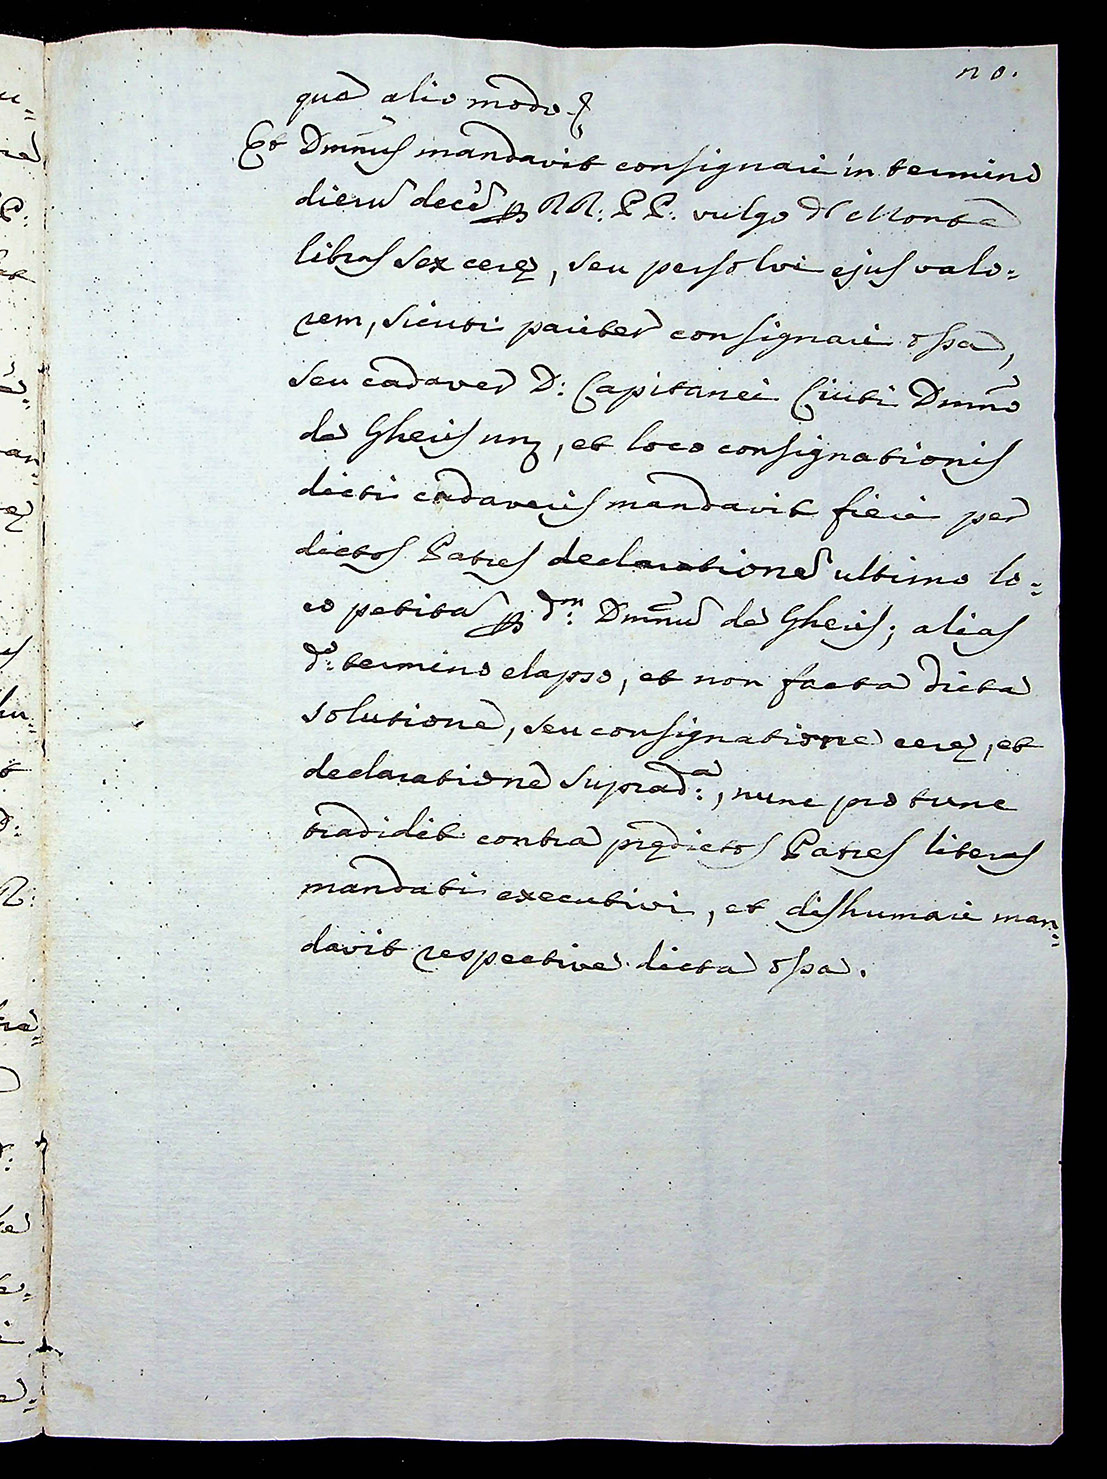 20.
que alio modo &
Et Dmnus mandavit consignari in termino
dierũ decẽ per RR: PP: vulgo di Monte
libras sex ceræ, seu persolvi ejus valo=
rem, sicuti pariter consignari ossa,
seu cadaver D: Capitanei Ciuti Dmno
de Gheri, et loco consignationis
dicti cadaveris mandavit fieri per
dictos Patres declarationẽ ultimo lo=
co petitã per dm: Dmnũ de Gheri; alias
do: termino elapso, et non facta dicta
solutione, seu consignatione ceræ, et
declaratione suprada:, nunc pro tunc
tradidit contra prædictos Patres literas
mandati executivi, et dishumari man=
davit respective dicta ossa.